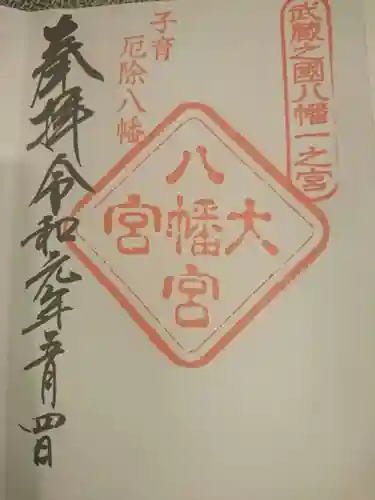 武蔵之國八幡一之宮
子育
厄除八幡
大八幡宮宮
奉拝
令和元年五月四日